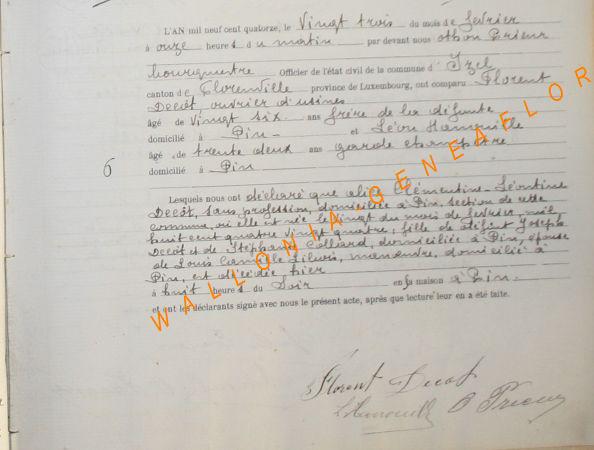 L'AN mil neuf cent quatorze, le Vingt trois du mois de fevrier
à onze heures du matin par devant nous Othon Prieur
bourgmestre Officier de l'état civil de la commune d'Izel
canton de Florenville province de Luxembourg, ont comparu Florent
Decôt, ouvrier d'usines
âgé de Vingt six ans frère de la défunte
domicilié à Pin et Léon
âgé de trente deux ans garde champêtre
domicilié à Pin
6
Lesquels nous ont déclaré que Clémentine Léontine
Decôt, sans profession, domiciliée à Pin, section de cette
commune, où elle est née le vingt du mois de fevrier, mil
huit cent quatre vingt quatre, fille de défunt Joseph
Decôt et de Stéphanie Colliard, domiciliée à Pin, épouse
de Louis domicilié à
Pin, est décédée hier
à huit heures du Soir en sa maison à Pin.
et ont les déclarants signé avec nous le présent acte, après que lecture leur en a été faite.
Florent Decot
O Prieur
WALLONIA-GENEAFLOR